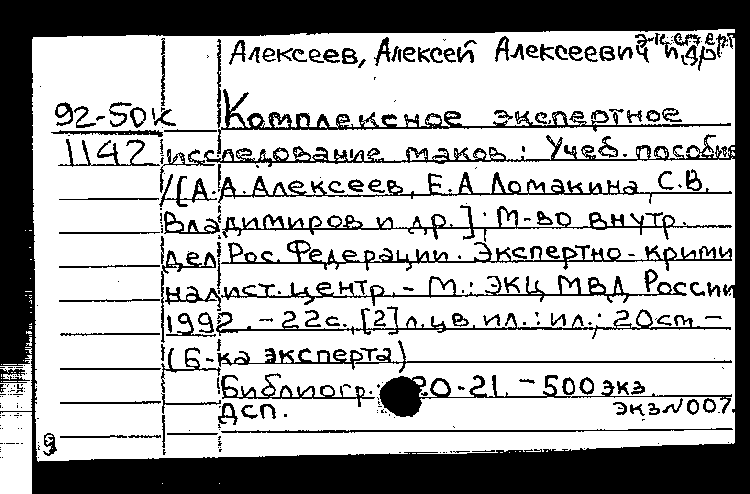 Алексеев, Алексей Алексеевич и др эксперт
92-50К Комплексное экспертное
1142 исследование маков: Учеб. пособие
/[А.А. Алексеев, Е.А Ломакина, С.В.
Владимиров и др.]; М-во внутр.
дел Рос. Федерации. Экспертно-крими
налист. центр. - М.: ЭКЦ МВД России
1992. - 22с., [2]л.цв.ил.: ил.; 20см. -
(Б-ка эксперта)
Библиогр.: 20-21. - 500 экз.
ДСП. экз N007.
9